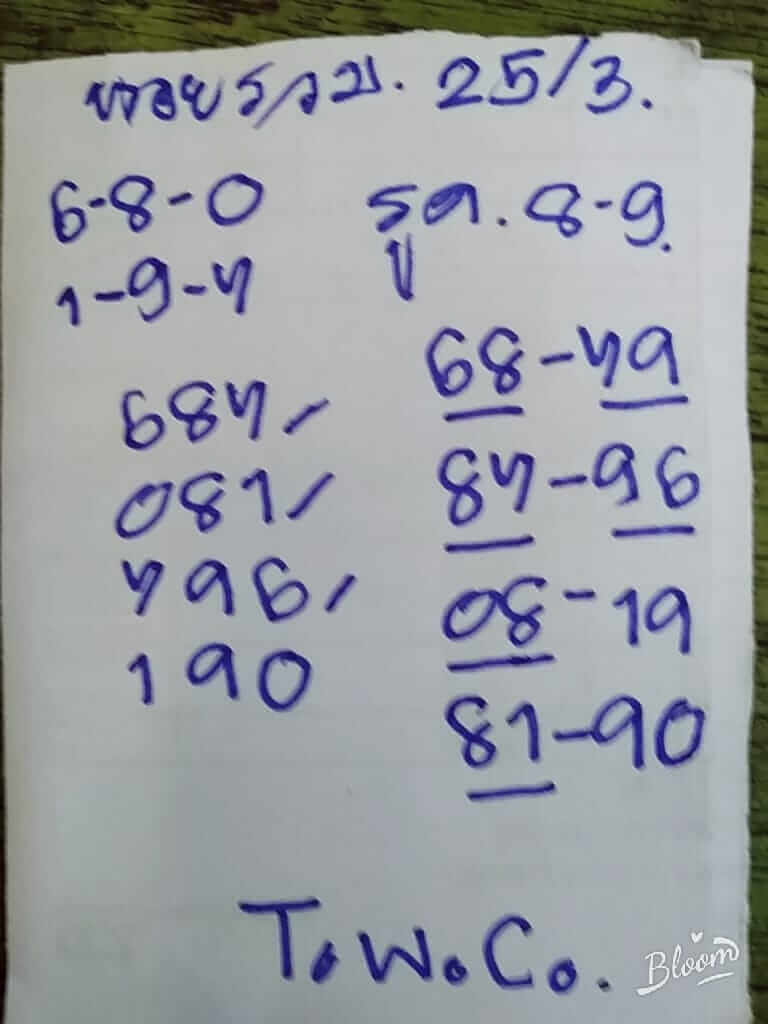 หวยรวม. 25/3.
6-8-0
1-9-7
รูด. 8-9.
687/
081/
796/
190
68-79
87-96
08-19
81-90
T.W.Co.
Bloom